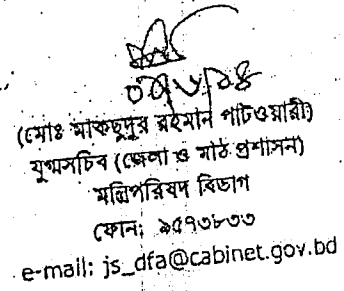 (মোঃ মাকছুদুর রহমান পাটওয়ারী)
যুগ্মসচিব (জেলা ও মাঠ প্রশাসন)
মন্ত্রিপরিষদ বিভাগ
ফোন: ৯৫৭৩৮৩৩
e-mail: js_dfa@cabinet.gov.bd